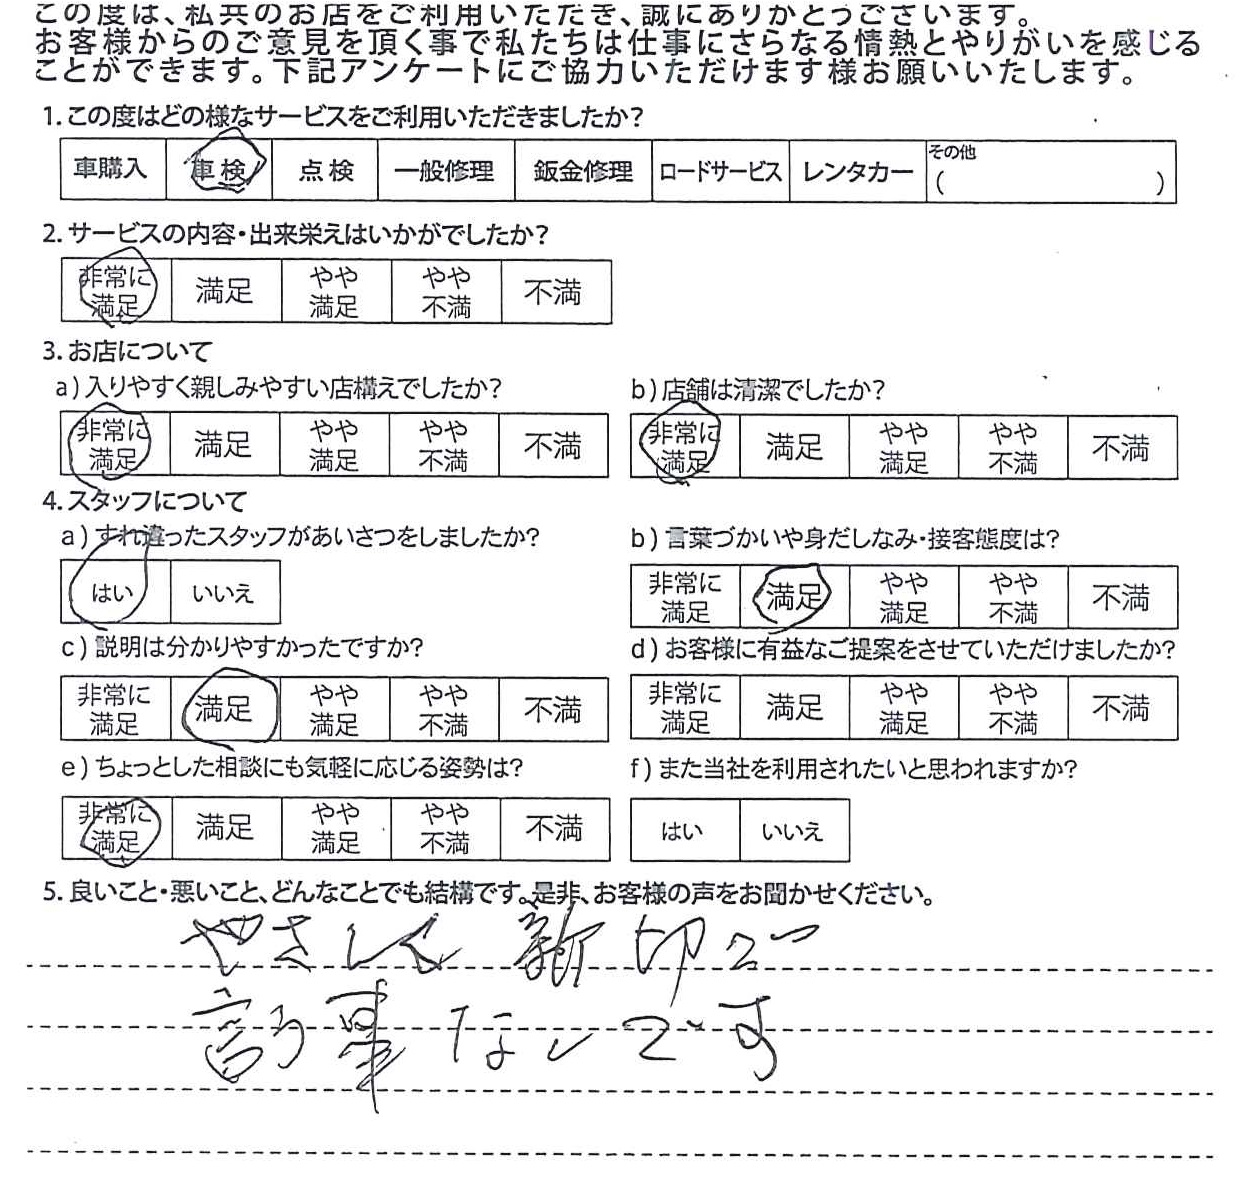 この度は、私共のお店をご利用いただき、誠にありがとうございます。
お客様からのご意見を頂く事で私たちは仕事にさらなる情熱とやりがいを感じる
ことができます。下記アンケートにご協力いただけます様お願いいたします。
1.この度はどの様なサービスをご利用いただきましたか?
車購入 車検 点検 一般修理 鈑金修理 ロードサービス レンタカー その他 ( )
2.サービスの内容・出来栄えはいかがでしたか?
非常に満足 満足 やや満足 やや不満 不満
3.お店について
a)入りやすく親しみやすい店構えでしたか?
非常に満足 満足 やや満足 やや不満 不満
b)店舗は清潔でしたか?
非常に満足 満足 やや満足 やや不満 不満
4.スタッフについて
a)すれ違ったスタッフがあいさつをしましたか?
はい いいえ
b)言葉づかいや身だしなみ・接客態度は?
非常に満足 満足 やや満足 やや不満 不満
c)説明は分かりやすかったですか?
非常に満足 満足 やや満足 やや不満 不満
d)お客様に有益なご提案をさせていただけましたか?
非常に満足 満足 やや満足 やや不満 不満
e)ちょっとした相談にも気軽に応じる姿勢は?
非常に満足 満足 やや満足 やや不満 不満
f)また当社を利用されたいと思われますか?
はい いいえ
5.良いこと・悪いこと、どんなことでも結構です。是非、お客様の声をお聞かせください。
やさしく親切で
言う事なしです